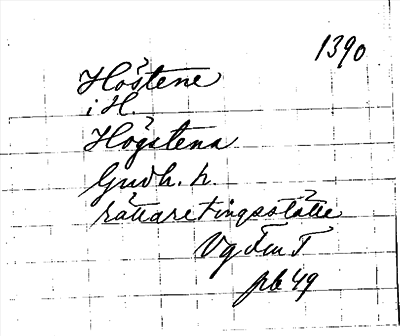 1390
Höstene
i H.
Högstena
Gudh. h.
rättaretingsställe
Vg Fm T
pb 49